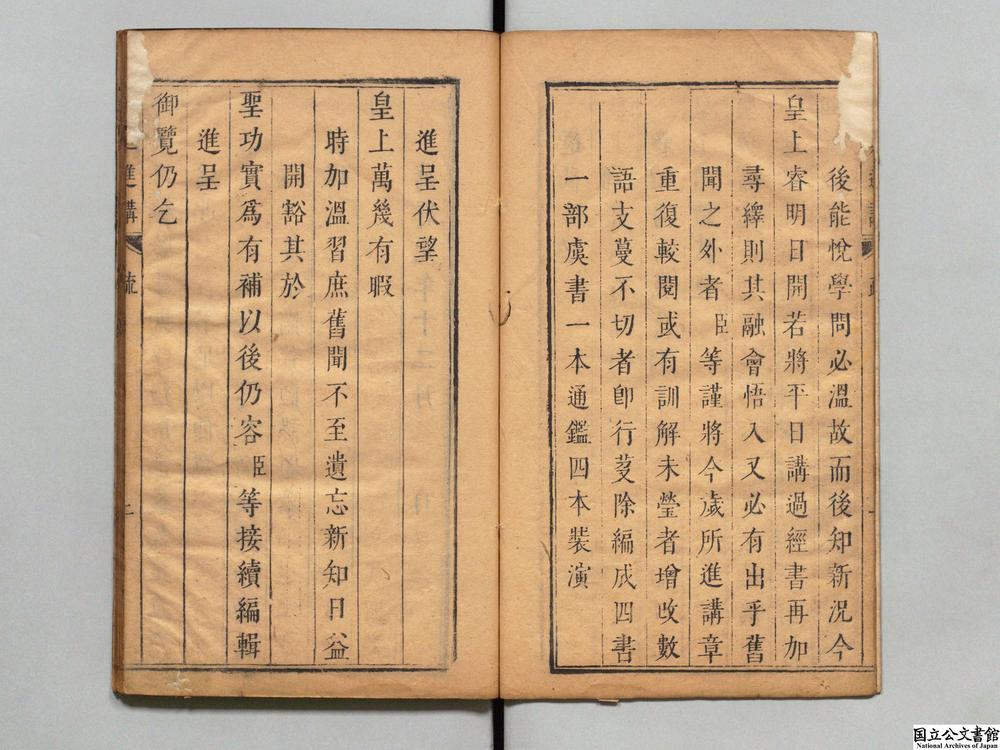 後能悅學問必溫故而後知新況今
皇上睿明日開若將平日講過經書再加
尋繹則其融會悟入又必有出乎舊
聞之外者臣等謹將今歲所進講章
重復較閱或有訓解未瑩者增改數
語支蔓不切者卽行芟除編成四書
一部虞書一本通鑑四本裝演
進呈伏望
皇上萬幾有暇
時加溫習庶舊聞不至遺忘新知日益
開豁其於
聖功實爲有補以後仍容臣等接續編輯
進呈
御覽仍乞
進講
疏
二
国立公文書館
National Archives of Japan